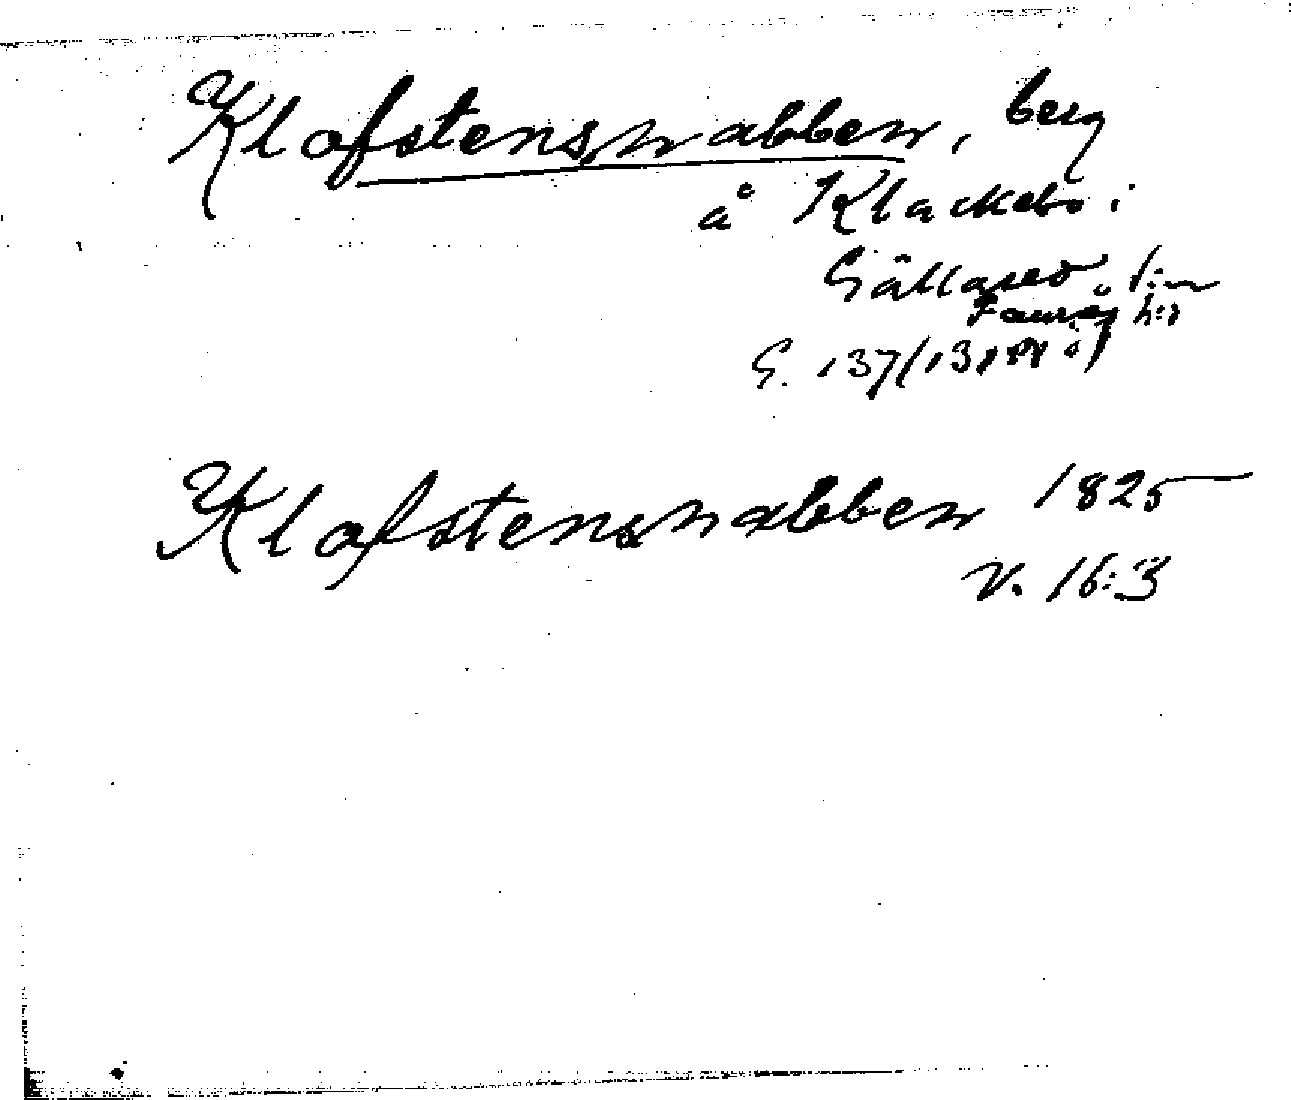 Klafstensnabben, berg
å Klackebo i
Gällared, s:n
Faurås h:d
G. 137
Klafstensnabben 1825
V. 16:3